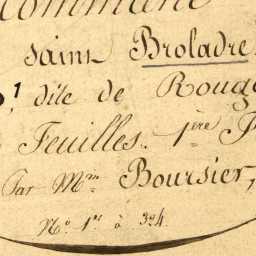 commune
saint Broladre
1, dite de Rouge
Feuilles. 1ère P
Par Mm. Boursier,
No. 1er à 324.